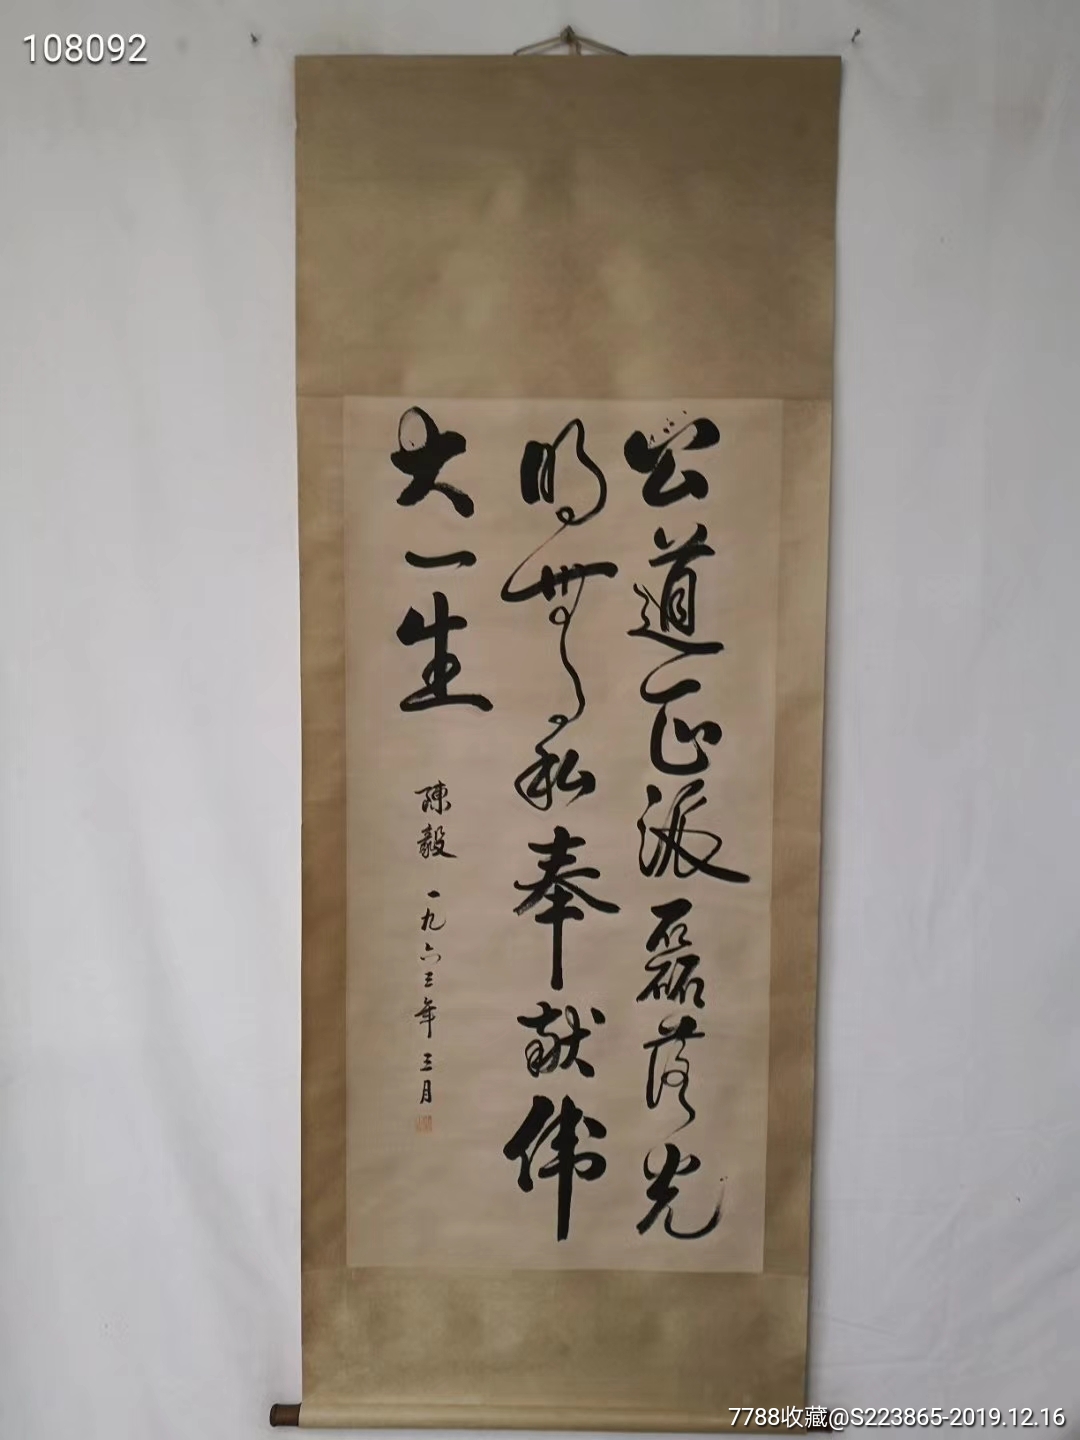 108092
公道正派磊落光
明無私奉献伟
大一生
陳毅 一九六三年 三月
7788收藏@S223865-2019.12.16